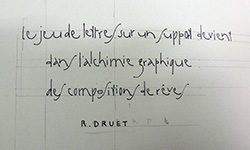 le jeu de lettres sur un support devient
dans l'alchimie graphique
des compositions de rêves
R. DRUET